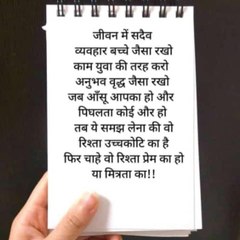 जीवन में सदैव
व्यवहार बच्चे जैसा रखो
काम युवा की तरह करो
अनुभव वृद्ध जैसा रखो
जब आँसू आपका हो और
पिघलता कोई और हो
तब ये समझ लेना की वो
रिश्ता उच्चकोटि का है
फिर चाहे वो रिश्ता प्रेम का हो
या मित्रता का!!